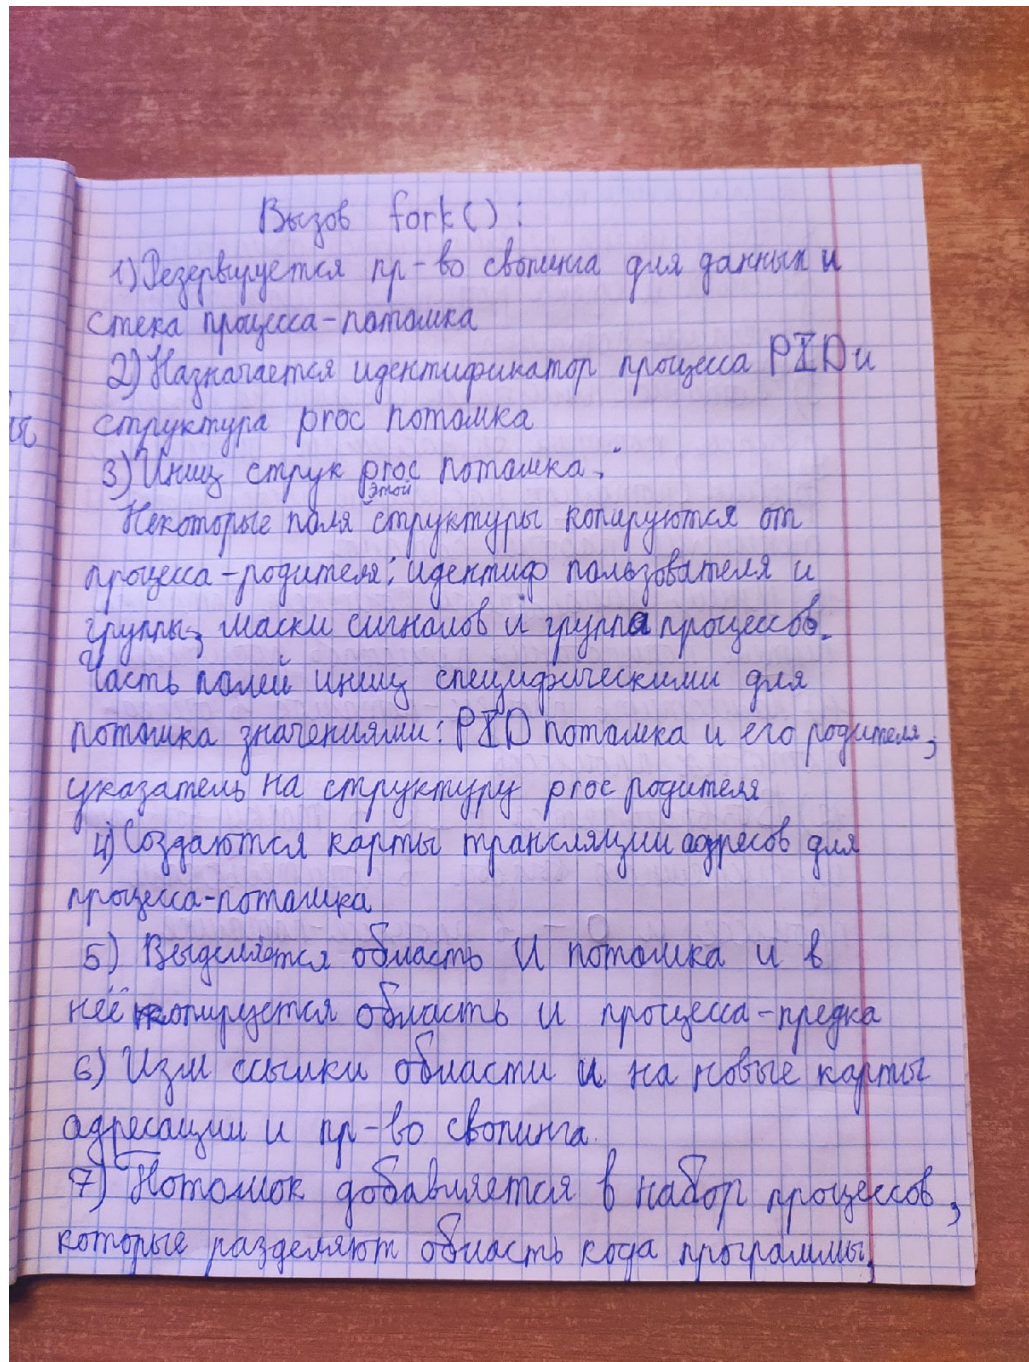 Вызов fork() :
1) Резервируется пр-во свопинга для данных и
стека процесса-потомка
2) Назначается идентификатор процесса PID и
структура proc потомка
3) Иниц струк proc потомка.
этой
Некоторые поля структуры копируются от
процесса-родителя: идентиф пользователя и
группы, маски сигналов и группа процессов.
Часть полей иниц специфическими для
потомка значениями: PID потомка и его родителя,
указатель на структуру proc родителя
4) Создаются карты трансляции адресов для
процесса-потомка
5) Выделяется область U потомка и в
неё копируется область U процесса-предка
6) Изм ссылки области U на новые карты
адресации и пр-во свопинга.
7) Потомок добавляется в набор процессов,
которые разделяют область кода программы,